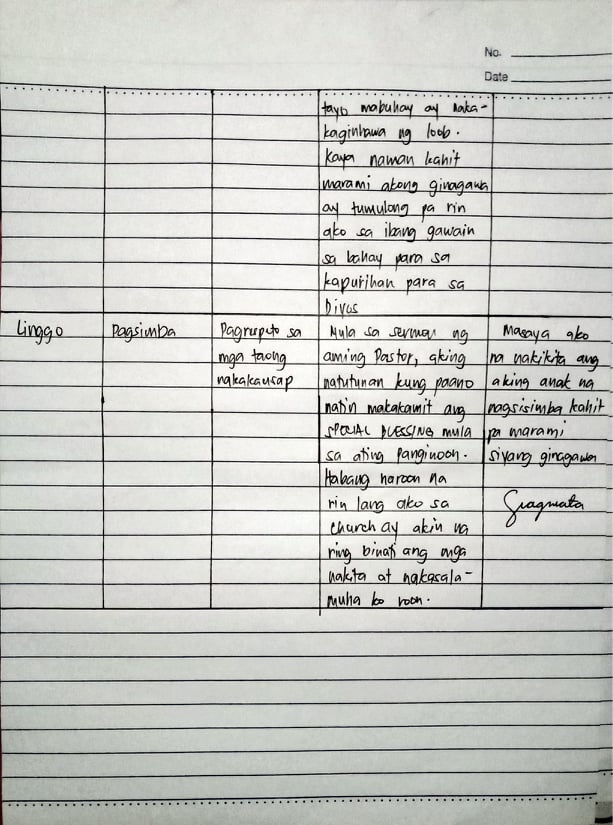 No.
Date
tayo mabuhay ay naka-
kaginhawa ng loob.
Kaya naman kahit
marami akong ginagawa
ay tumulong pa rin
ako sa ibang gawain
sa bahay para sa
kapurihan para sa
Diyos
Linggo
Pagsimba
Pagrespeto sa
mga taong
nakakausap
Mula sa sermon ng
aming Pastor, aking
natutunan kung paano
natin makakamit ang
SPECIAL BLESSING mula
sa ating Panginoon.
Habang naroon na
rin lang ako sa
church ay akin na
ring binati ang mga
nakita at nakasala-
muha ko roon.
Masaya ako
na nakikita ang
aking anak na
nagsisimba kahit
pa marami
siyang ginagawa